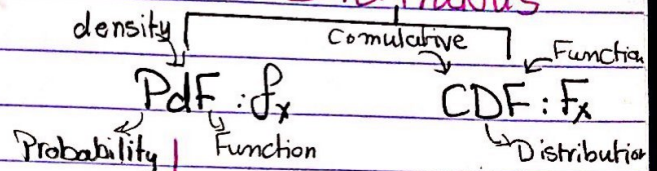 density Comulative Function
PdF : fx CDF : Fx
Probability Function Distribution